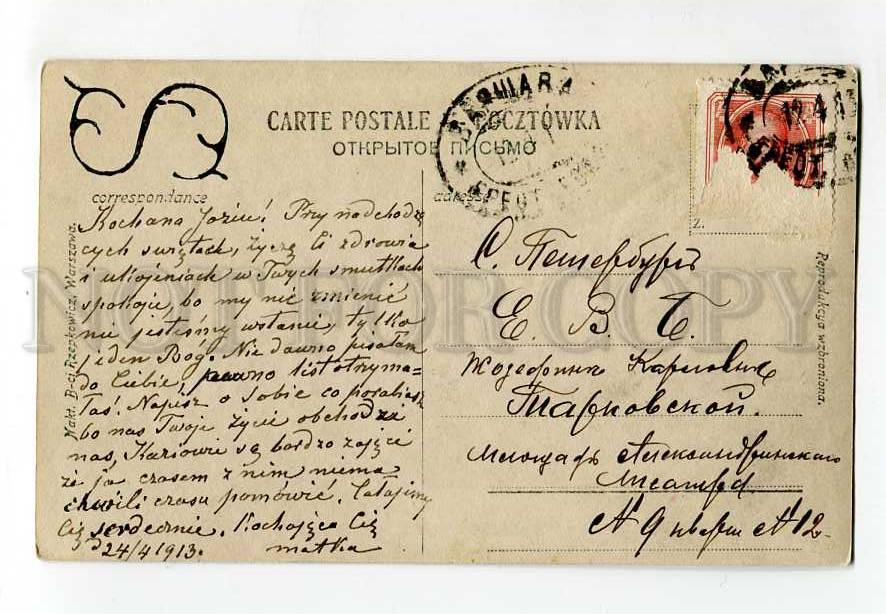 CARTE POSTALE POCZTÓWKA
ОТКРЫТОЕ ПИСЬМО
correspondance
adresse
Kochana Joziu! Przy nadchodzą
cych swiętach, życzę Ci zdrowia
i ukojeniach w Twych smutkach
spokoju, bo my nic zmienić
nie jesteśmy wstanie, tylko
jeden Bóg. Nie dawno pisałam
do Ciebie, pewno list otrzyma-
łaś. Napisz o sobie co porabiasz
bo nas Twoje życie obchodzi
nas, Kaziowie są bardzo zajęci
że ja czasem z nim niema
chwili czasu pomówić. Całujemy
Cię serdecznie. Kochająca Cię
matka
d 24/4 1913.
С. Петербургъ
Е. В. Б.
Жозефинѣ Карловнѣ
Тарковской.
Площадь Александринскаго
Театра
№ 9 кварт № 12
Nakł. B-ci Rzepkowicz, Warszawa.
Reprodukcya wzbroniona.
ВАРШАВА
12.4.13
NOT FOR COPY